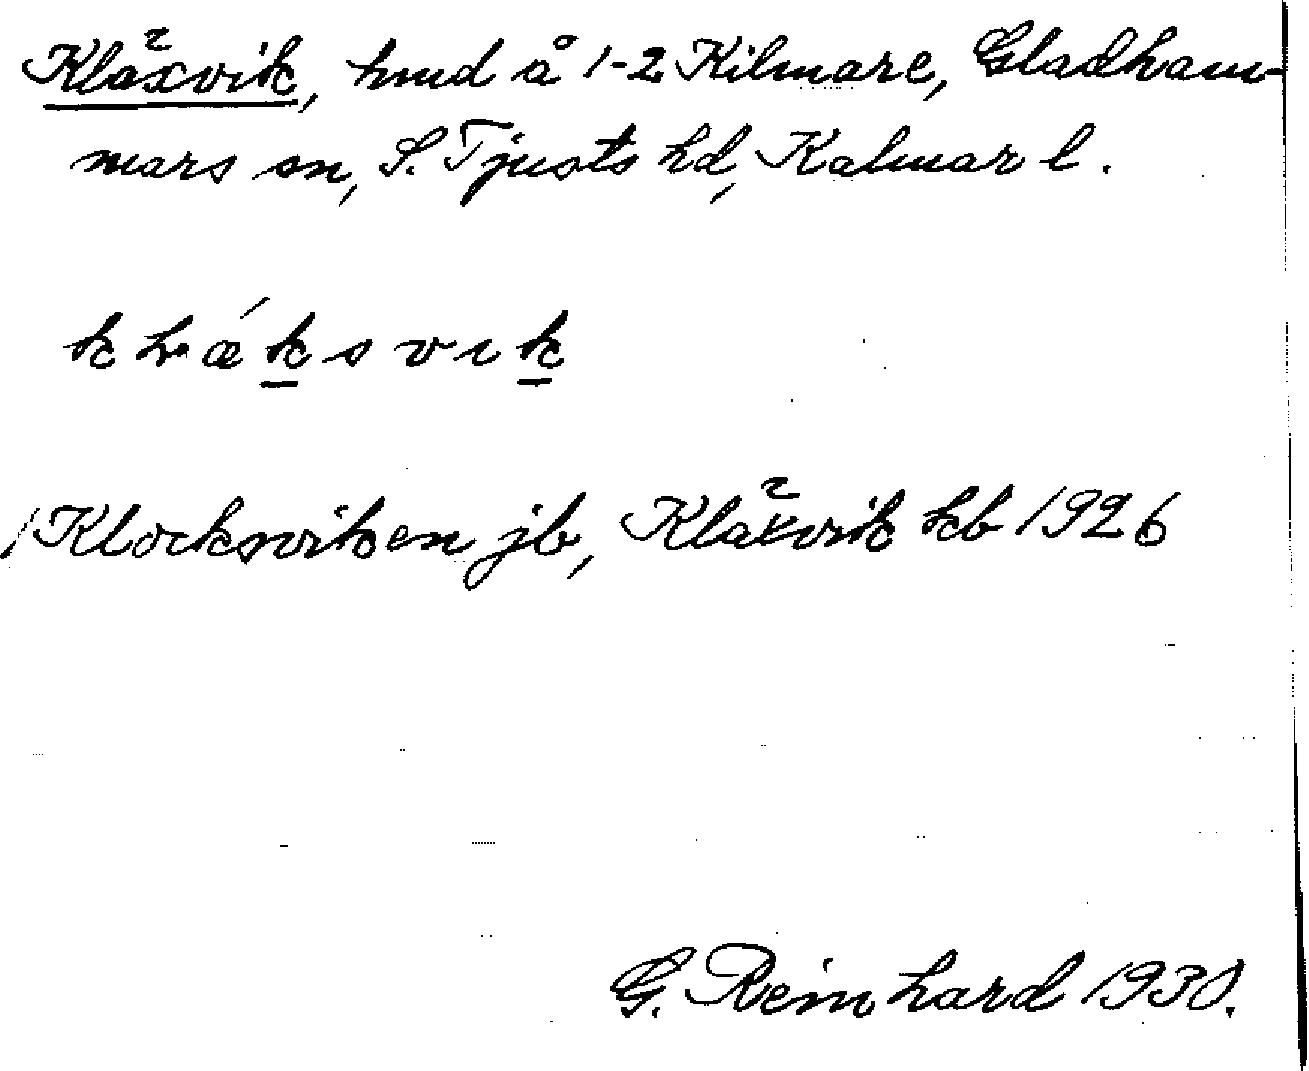 Kläxvik, hmd å 1-2 Kilmare, Gladham-
mars sn, S. Tjusts hd, Kalmar l.
klǽksvık
Klocksviken jb, Kläxvik kb 1926
G. Reinhard 1930.